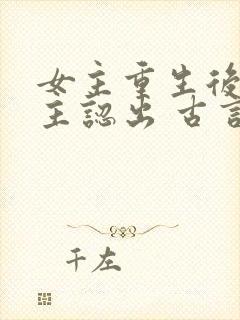 女主重生後
主認出 古言
千左